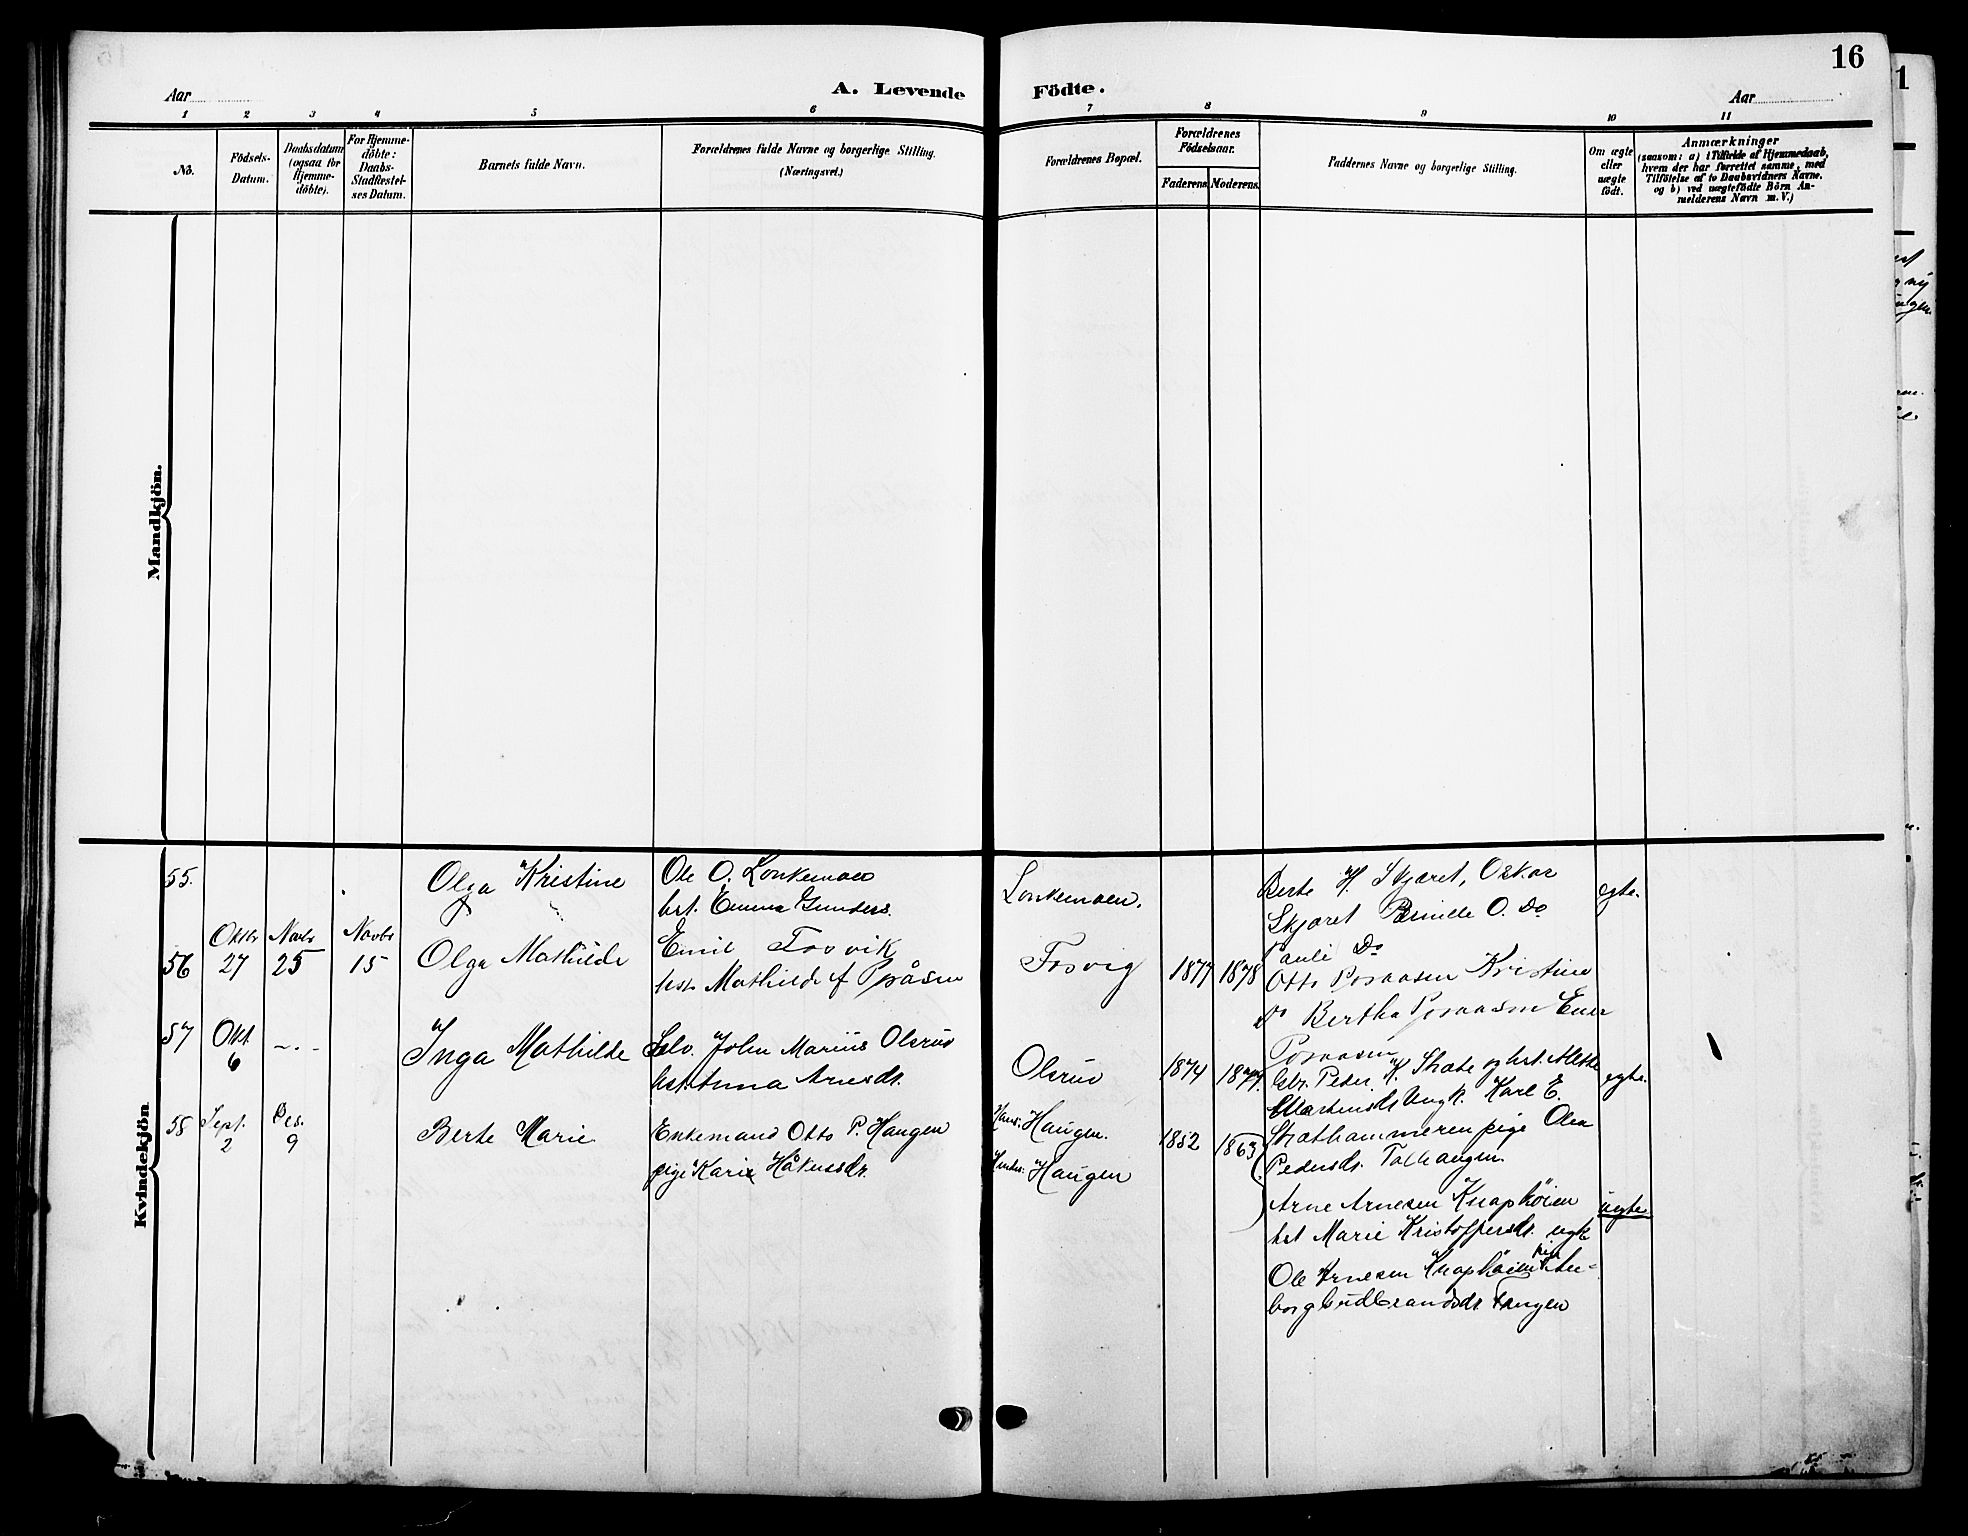 16
Aar
A. Levende Födte.
Aar
1 2 3 4 5 6 7 8 9 10 11
No.
Födsels-Datum.
Daabsdatum (ogsaa for Hjemmedöbte).
For Hjemmedöbte: Daabs-Stadfestelses Datum.
Barnets fulde Navn.
Forældrenes fulde Navne og borgerlige Stilling. (Næringsvei.)
Forældrenes Bopæl.
Forældrenes Födselsaar.
Faderens. Moderens.
Faddernes Navne og borgerlige Stilling.
Om ægte eller uægte födt.
Anmærkninger
(saasom: a) i Tilfælde af Hjemmedaab,
hvem der har forrettet samme, med
Tilföielse af to Daabsvidners Navne.
og b) ved uægtefödte Börn An-
melderens Navn m. V.)
Mandkjön.
Kvindekjön
55. Olga Kristine
Ole O. Lonkemoen
hst. Emma Gunders.
Lonkemoen.
Berte H. Skjæret, Oskar
Skjæret Pernille O. Do
Pauli Do
egte.
56 Oktbr 27 Novbr 25 Novbr 15 Olga Mathilde
Emil Fosvik
hst. Mathilde f
Fosvig 1877 1878
Otto Kristine
Do Bertha
57 Okt. 6 Inga Mathilde
Selv. John Marius Olsrud
hst. Anna Arnesdr.
Olsrud 1874 1877.
Gbr. Peder K. og hst.
Martensdr Ungk. Karl E.
pige Olea
Pedersdr.
egte.
58 Sept. 2 Des. 9 Berte Marie
Enkemand Otto P. Haugen
pige Karie Håkensdr.
Hans: Haugen.
Hendes: Haugen
1852 1863
Arne Arnesen Knaphöien
hst Marie Kristoffersdr. ugk
Ole Arnesen Knaphöien pige
Gudbrandsdr
uegte